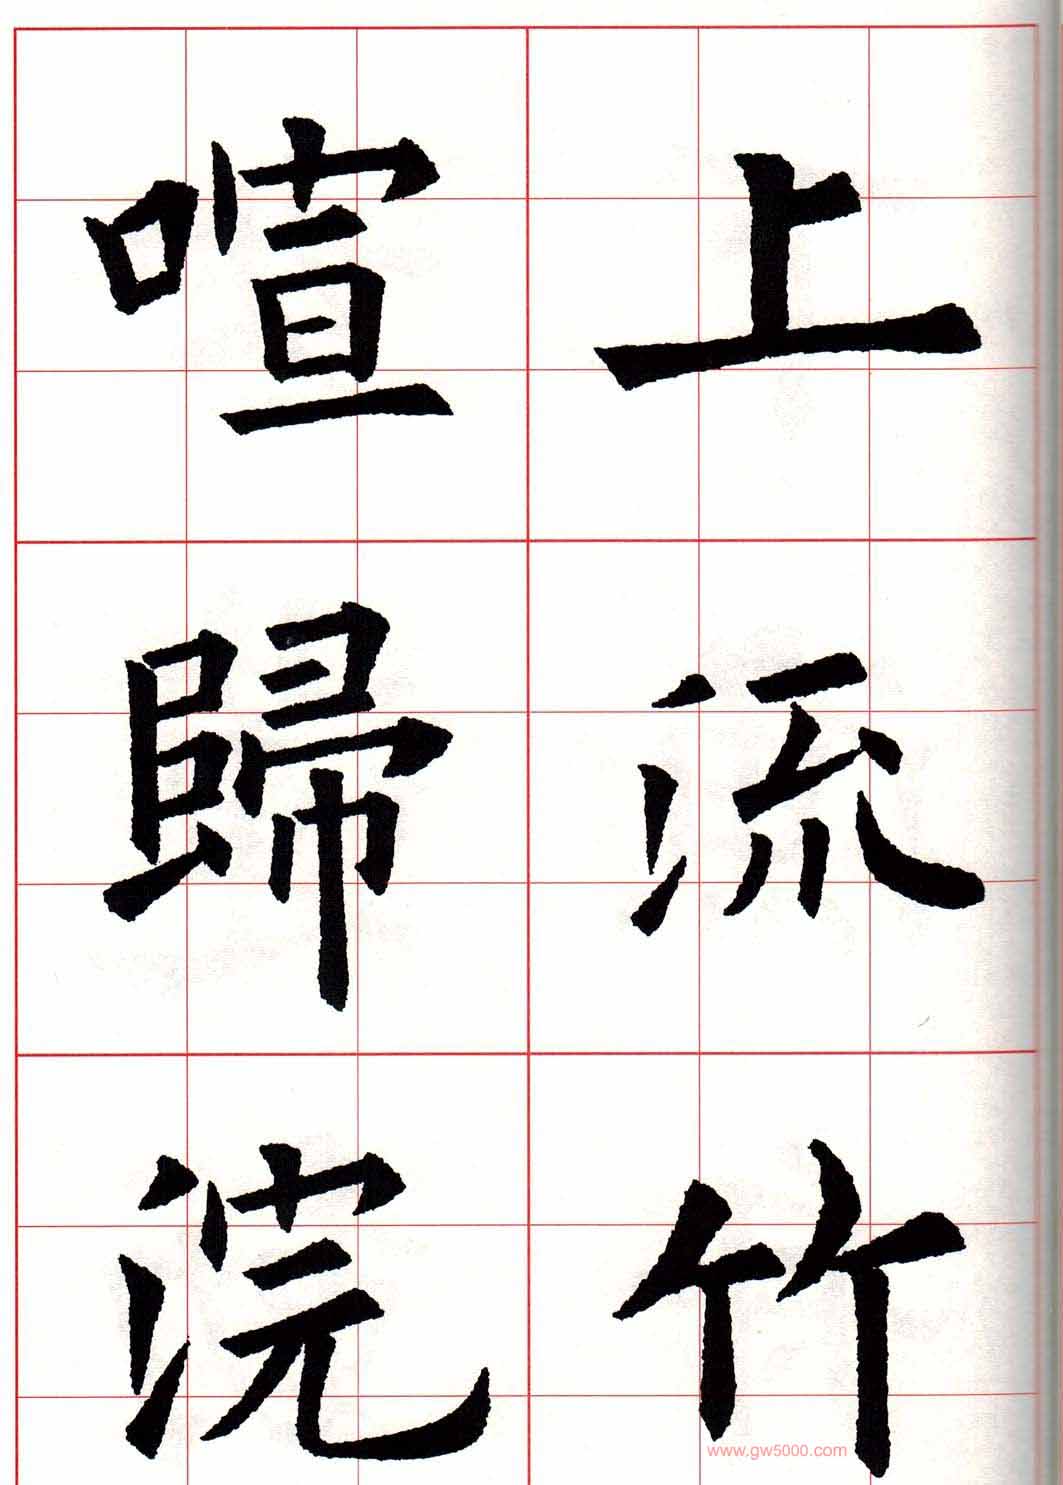 上流竹
喧歸浣
www.gw5000.com